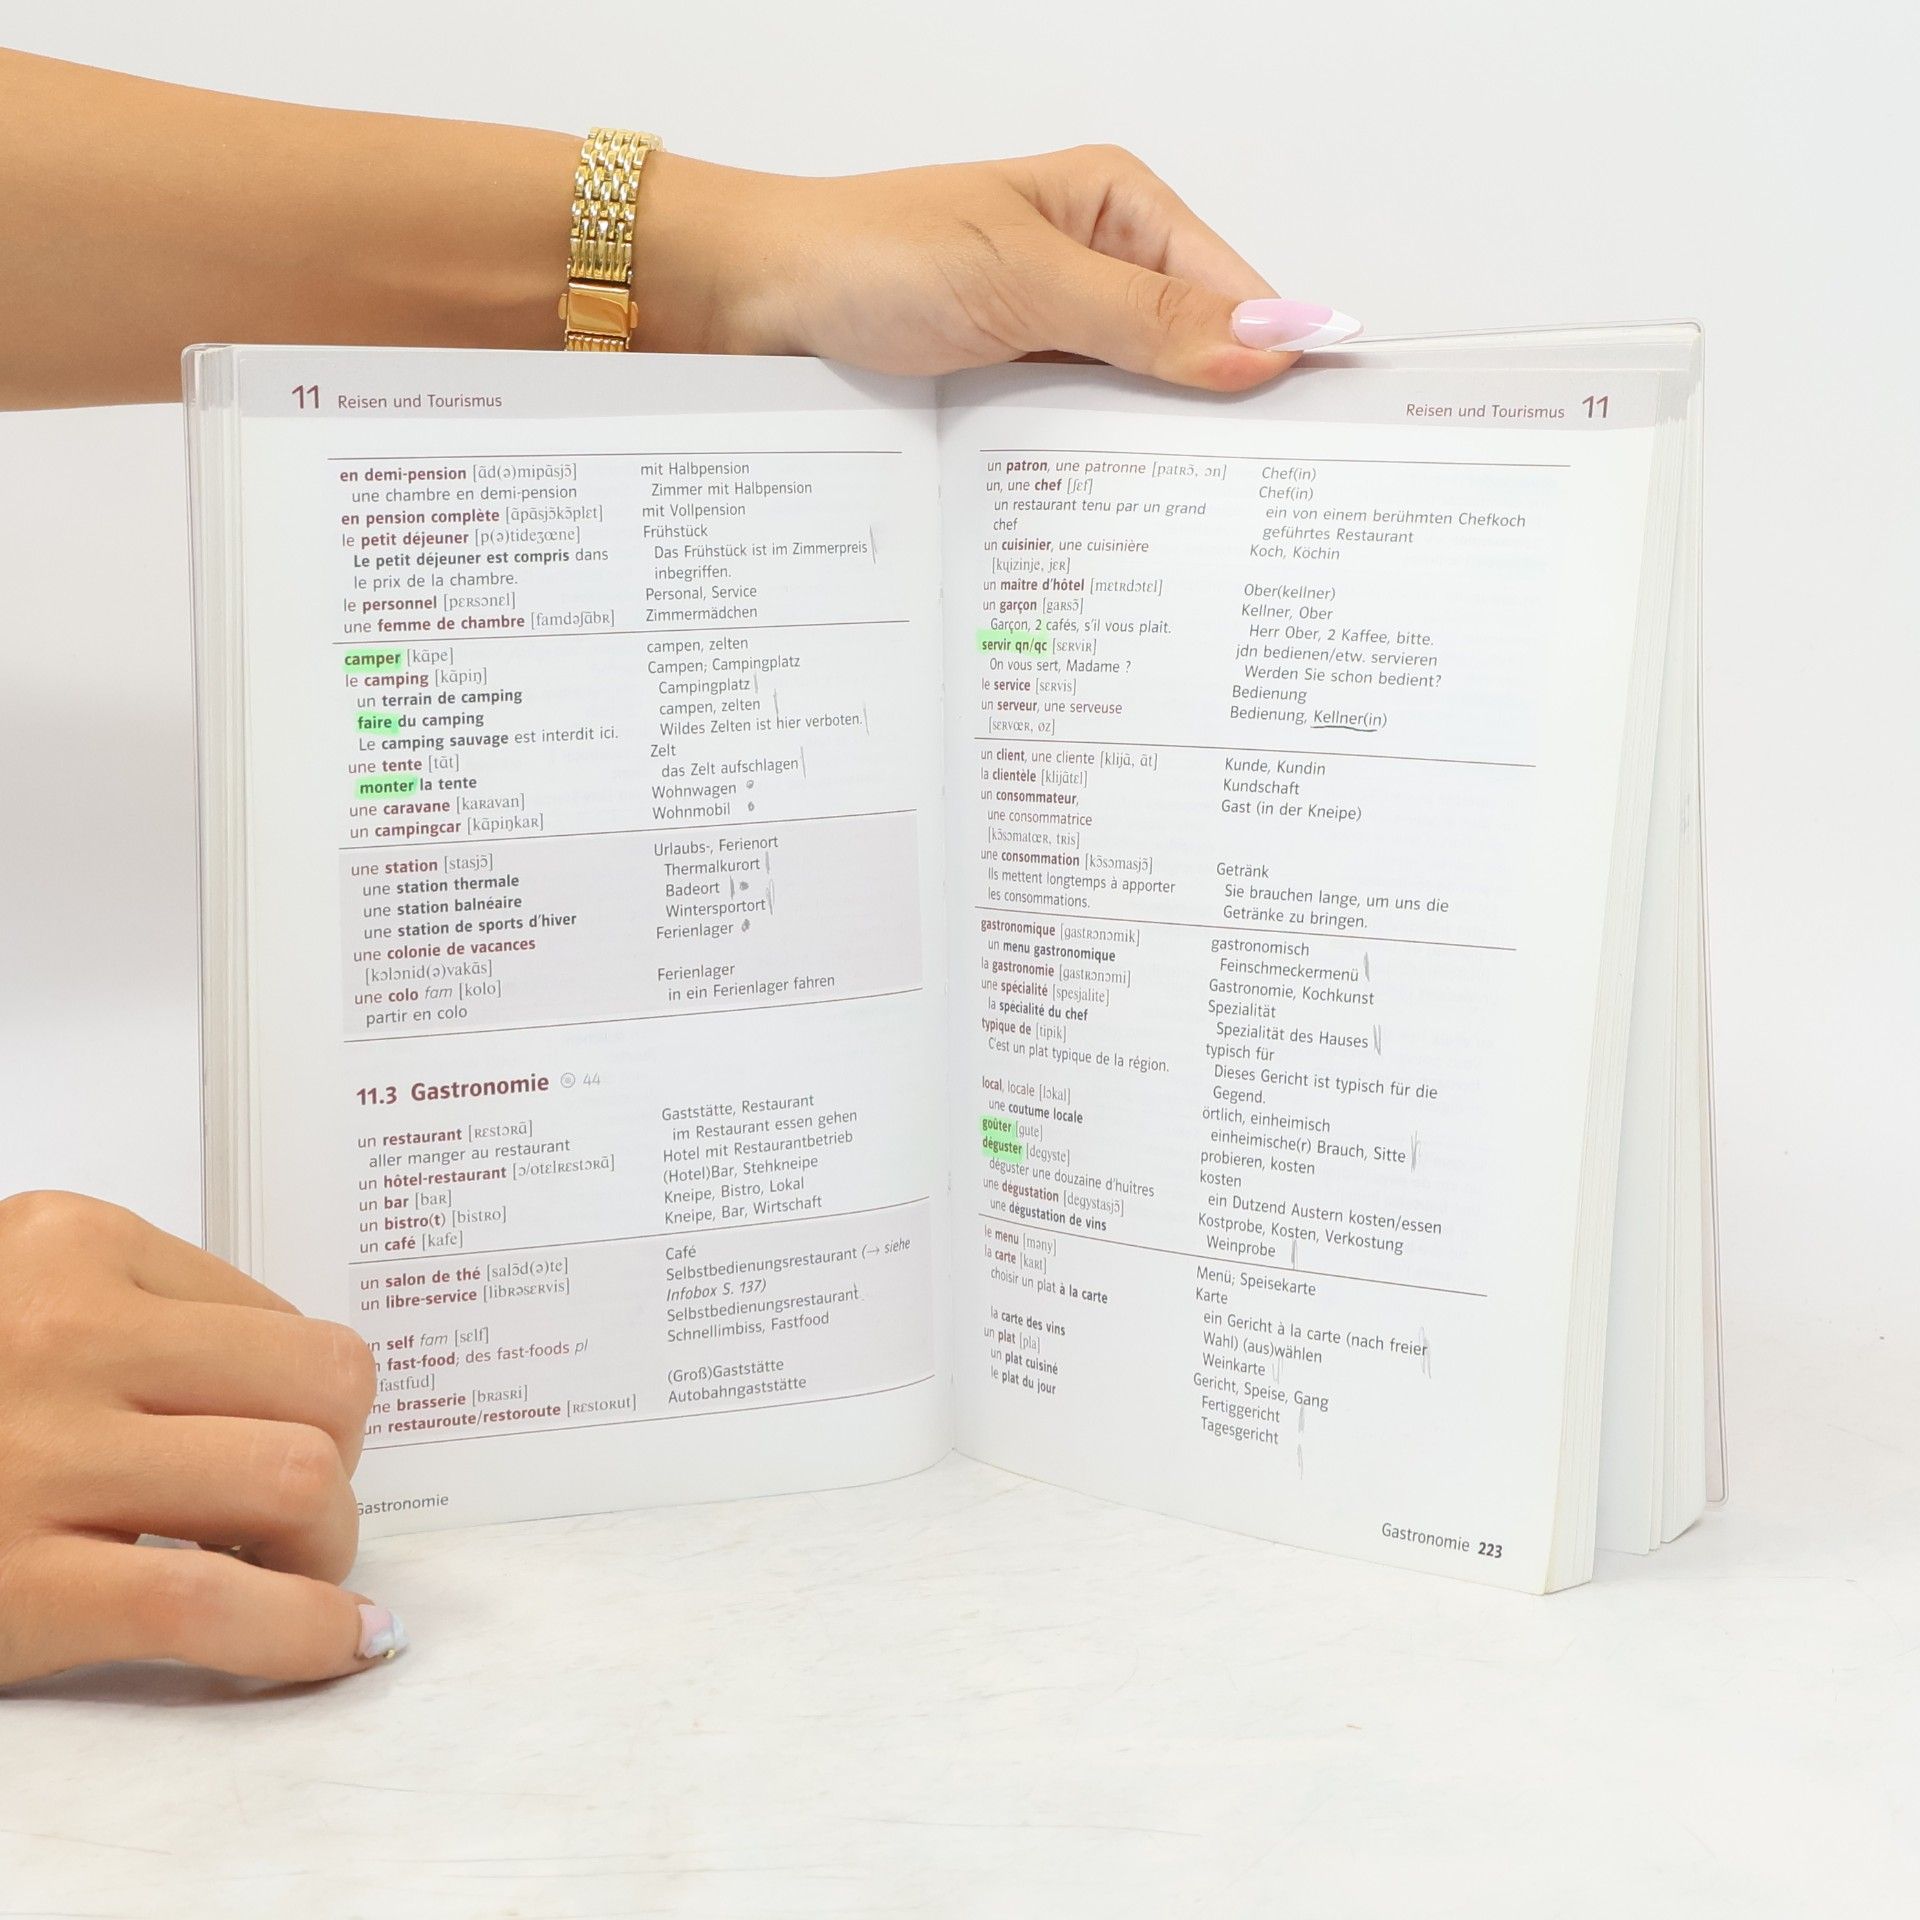 11 Reisen und Tourismus
en demi-pension [ɑ̃d(ə)mipɑ̃sjɔ̃] mit Halbpension
une chambre en demi-pension Zimmer mit Halbpension
en pension complète [ɑ̃pɑ̃sjɔ̃kɔ̃plɛt] mit Vollpension
le petit déjeuner [p(ə)tideʒœne] Frühstück
Le petit déjeuner est compris dans Das Frühstück ist im Zimmerpreis
le prix de la chambre. inbegriffen.
le personnel [pɛRsɔnɛl] Personal, Service
une femme de chambre [famdəʃɑ̃bR] Zimmermädchen
camper [kɑ̃pe] campen, zelten
le camping [kɑ̃piŋ] Campen; Campingplatz
un terrain de camping Campingplatz
faire du camping campen, zelten
Le camping sauvage est interdit ici. Wildes Zelten ist hier verboten.
une tente [tɑ̃t] Zelt
monter la tente das Zelt aufschlagen
une caravane [kaRavan] Wohnwagen
un campingcar [kɑ̃piŋkaR] Wohnmobil
une station [stasjɔ̃] Urlaubs-, Ferienort
une station thermale Thermalkurort
une station balnéaire Badeort
une station de sports d'hiver Wintersportort
une colonie de vacances Ferienlager
[kɔlɔnid(ə)vakɑ̃s]
une colo fam [kolo] Ferienlager
partir en colo in ein Ferienlager fahren
11.3 Gastronomie 44
un restaurant [RɛstɔRɑ̃] Gaststätte, Restaurant
aller manger au restaurant im Restaurant essen gehen
un hôtel-restaurant [ɔ/otɛlRɛstɔRɑ̃] Hotel mit Restaurantbetrieb
un bar [baR] (Hotel)Bar, Stehkneipe
un bistro(t) [bistRo] Kneipe, Bistro, Lokal
un café [kafe] Kneipe, Bar, Wirtschaft
un salon de thé [salɔ̃d(ə)te] Café
un libre-service [libRəsɛRvis] Selbstbedienungsrestaurant (→ siehe
Infobox S. 137)
un self fam [sɛlf] Selbstbedienungsrestaurant
fast-food; des fast-foods pl Schnellimbiss, Fastfood
[fastfud]
ne brasserie [bRasRi] (Groß)Gaststätte
un restauroute/restoroute [RɛstoRut] Autobahngaststätte
Gastronomie
Reisen und Tourismus 11
un patron, une patronne [patRɔ̃, ɔn] Chef(in)
un, une chef [ʃɛf] Chef(in)
un restaurant tenu par un grand ein von einem berühmten Chefkoch
chef geführtes Restaurant
un cuisinier, une cuisinière Koch, Köchin
[kɥizinje, jɛR]
un maître d'hôtel [mɛtRdɔtɛl] Ober(kellner)
un garçon [gaRsɔ̃] Kellner, Ober
Garçon, 2 cafés, s'il vous plaît. Herr Ober, 2 Kaffee, bitte.
servir qn/qc [sɛRviR] jdn bedienen/etw. servieren
On vous sert, Madame ? Werden Sie schon bedient?
le service [sɛRvis] Bedienung
un serveur, une serveuse Bedienung, Kellner(in)
[sɛRvœR, øz]
un client, une cliente [klijɑ̃, ɑ̃t] Kunde, Kundin
la clientèle [klijɑ̃tɛl] Kundschaft
un consommateur, Gast (in der Kneipe)
une consommatrice
[kɔ̃sɔmatœR, tRis]
une consommation [kɔ̃sɔmasjɔ̃] Getränk
Ils mettent longtemps à apporter Sie brauchen lange, um uns die
les consommations. Getränke zu bringen.
gastronomique [gastRɔnɔmik] gastronomisch
un menu gastronomique Feinschmeckermenü
la gastronomie [gastRɔnɔmi] Gastronomie, Kochkunst
une spécialité [spesjalite] Spezialität
la spécialité du chef Spezialität des Hauses
typique de [tipik] typisch für
C'est un plat typique de la région. Dieses Gericht ist typisch für die
Gegend.
local, locale [lɔkal] örtlich, einheimisch
une coutume locale einheimische(r) Brauch, Sitte
goûter [gute] probieren, kosten
déguster [degyste] kosten
déguster une douzaine d'huîtres ein Dutzend Austern kosten/essen
une dégustation [degystasjɔ̃] Kostprobe, Kosten, Verkostung
une dégustation de vins Weinprobe
le menu [məny] Menü; Speisekarte
la carte [kaRt] Karte
choisir un plat à la carte ein Gericht à la carte (nach freier
Wahl) (aus)wählen
la carte des vins Weinkarte
un plat [pla] Gericht, Speise, Gang
un plat cuisiné Fertiggericht
le plat du jour Tagesgericht
Gastronomie 223